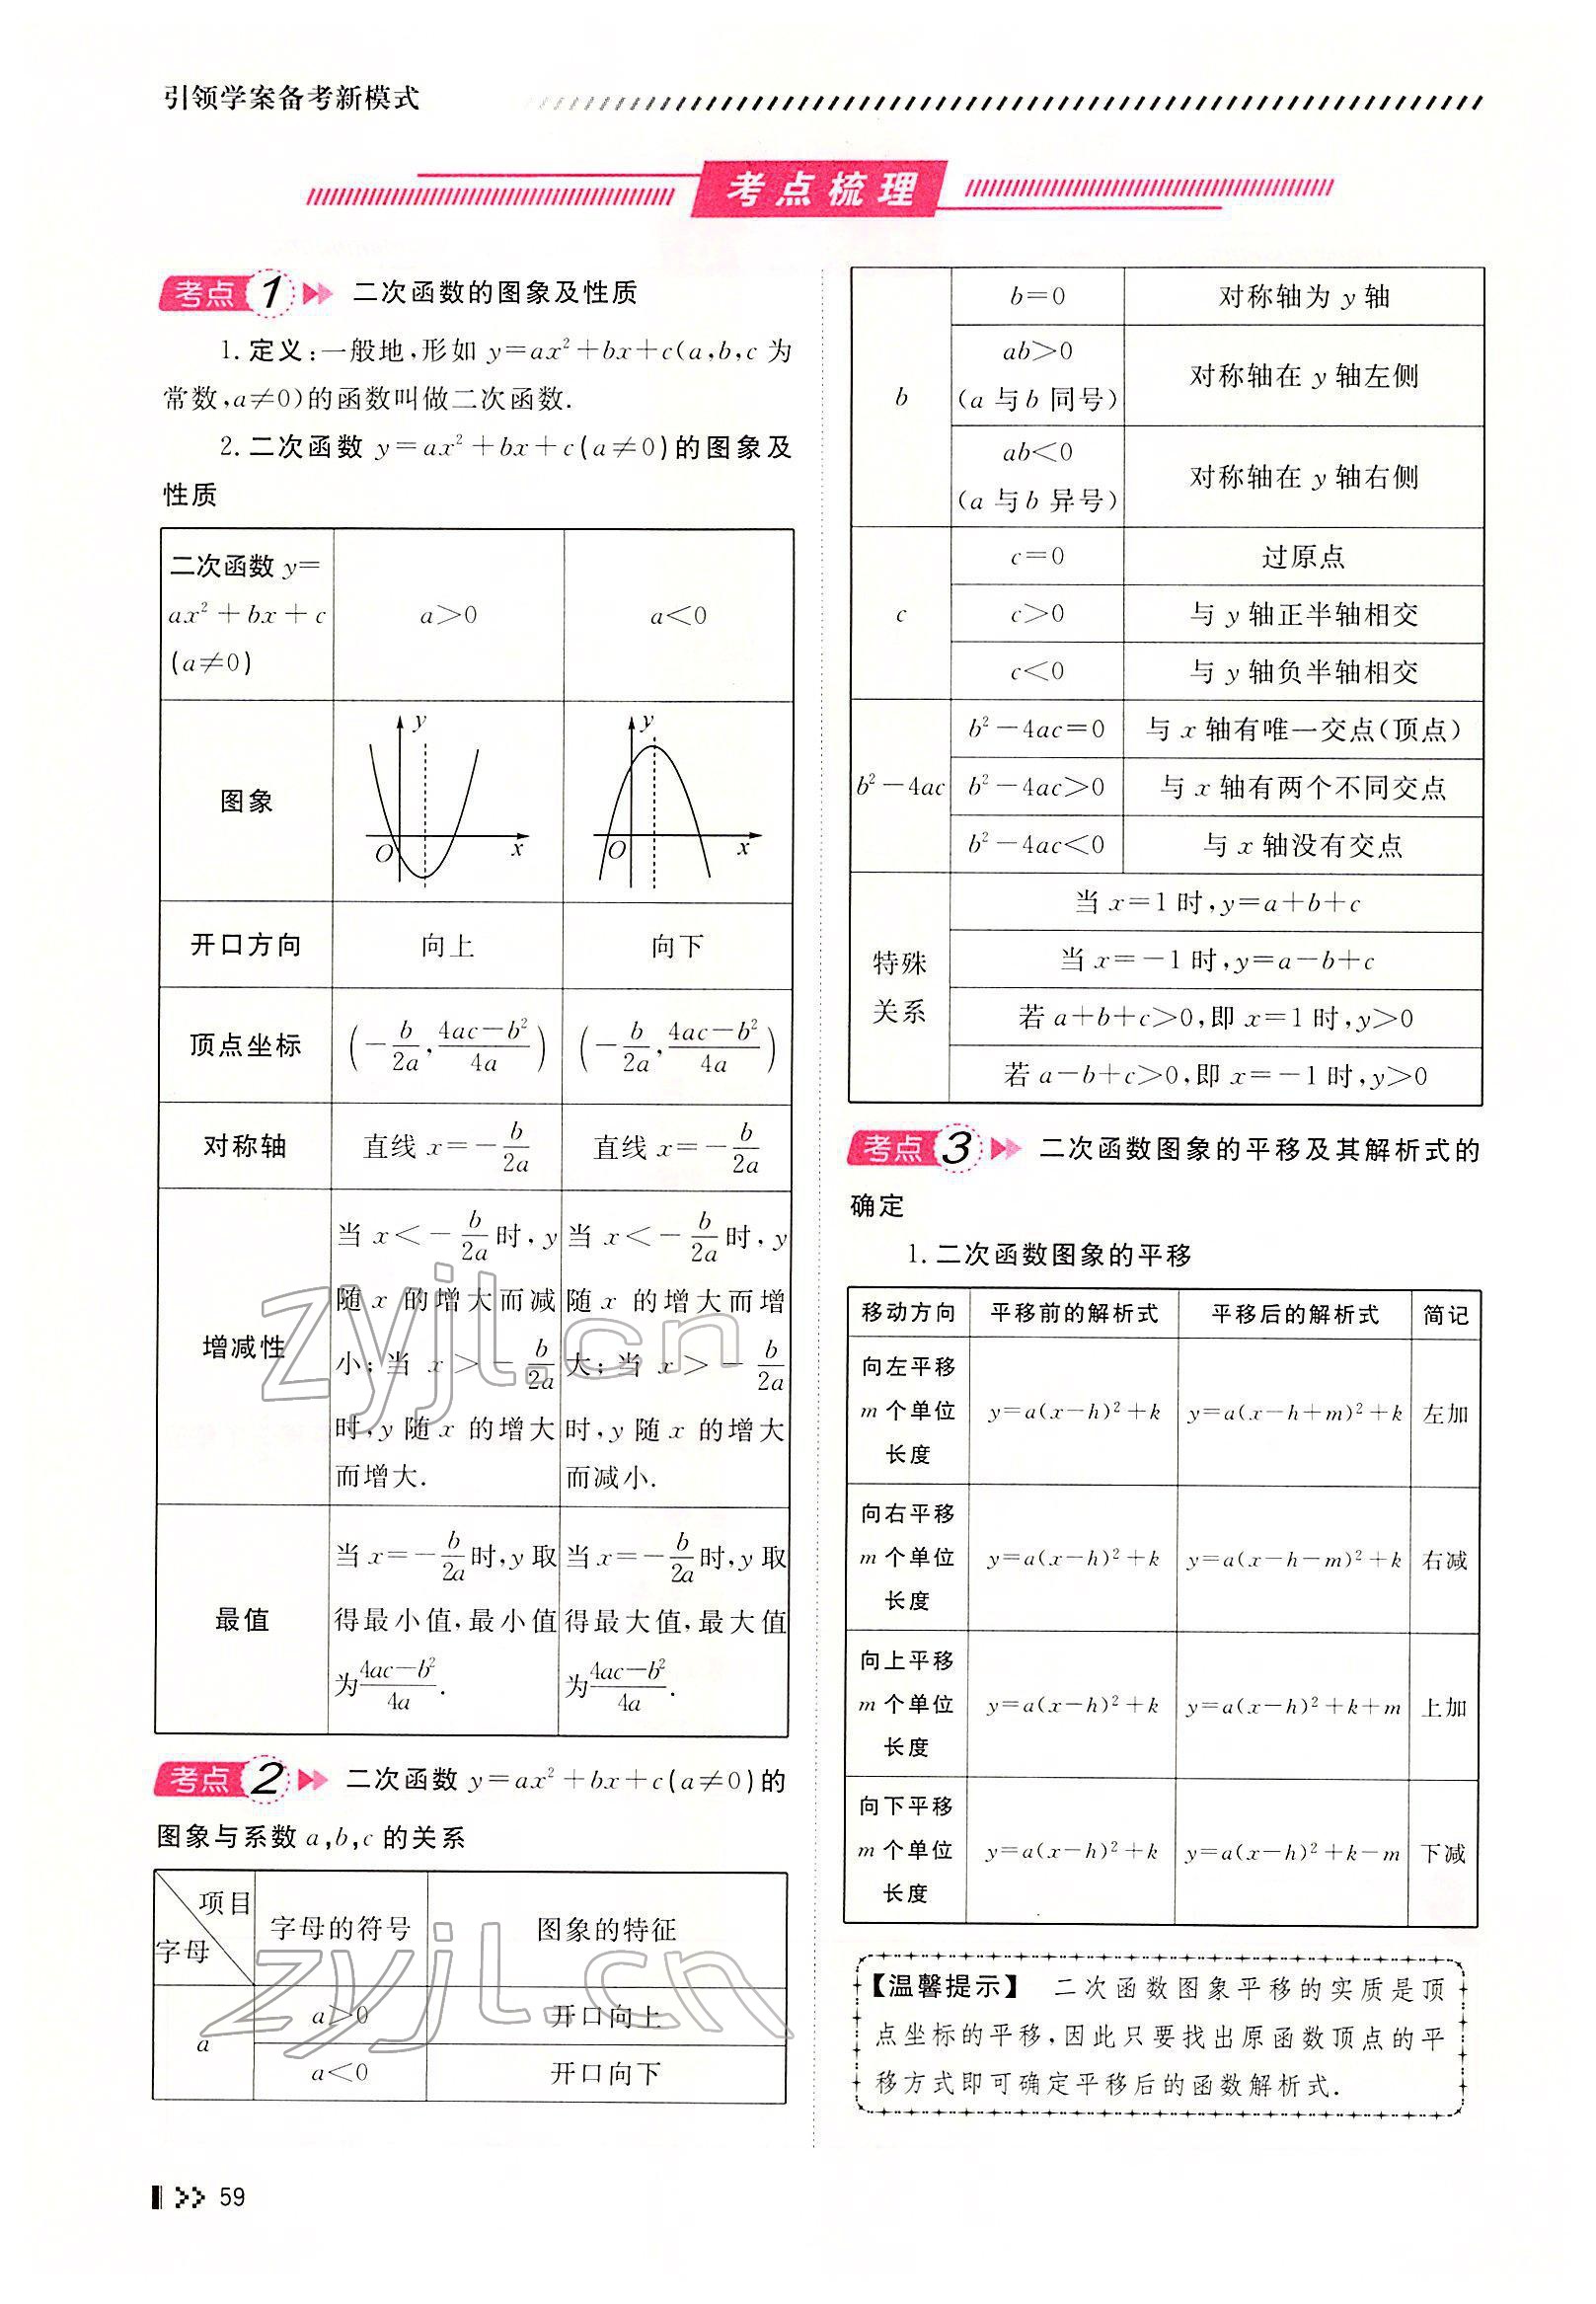 引领学案备考新模式
考点梳理
考点1 二次函数的图象及性质
1. 定义:一般地,形如 y=ax²+bx+c(a,b,c 为
常数,a≠0)的函数叫做二次函数.
2. 二次函数 y=ax²+bx+c(a≠0)的图象及
性质
二次函数 y=
ax²+bx+c
(a≠0)
a>0
a<0
图象
y
O
x
y
O
x
开口方向
向上
向下
顶点坐标
(-b/2a, (4ac-b²)/4a)
(-b/2a, (4ac-b²)/4a)
对称轴
直线 x=-b/2a
直线 x=-b/2a
增减性
当 x<-b/2a时,y
随 x 的增大而减
小;当 x>-b/2a
时,y 随 x 的增大
而增大.
当 x<-b/2a时,y
随 x 的增大而增
大;当 x>-b/2a
时,y 随 x 的增大
而减小.
最值
当 x=-b/2a时,y 取
得最小值,最小值
为(4ac-b²)/4a.
当 x=-b/2a时,y 取
得最大值,最大值
为(4ac-b²)/4a.
考点2 二次函数 y=ax²+bx+c(a≠0)的
图象与系数 a,b,c 的关系
项目
字母
字母的符号
图象的特征
a
a>0
开口向上
a<0
开口向下
b
b=0
对称轴为 y 轴
ab>0
(a 与 b 同号)
对称轴在 y 轴左侧
ab<0
(a 与 b 异号)
对称轴在 y 轴右侧
c
c=0
过原点
c>0
与 y 轴正半轴相交
c<0
与 y 轴负半轴相交
b²-4ac
b²-4ac=0
与 x 轴有唯一交点(顶点)
b²-4ac>0
与 x 轴有两个不同交点
b²-4ac<0
与 x 轴没有交点
特殊
关系
当 x=1 时,y=a+b+c
当 x=-1 时,y=a-b+c
若 a+b+c>0,即 x=1 时,y>0
若 a-b+c>0,即 x=-1 时,y>0
考点3 二次函数图象的平移及其解析式的
确定
1. 二次函数图象的平移
移动方向
平移前的解析式
平移后的解析式
简记
向左平移
m 个单位
长度
y=a(x-h)²+k
y=a(x-h+m)²+k
左加
向右平移
m 个单位
长度
y=a(x-h)²+k
y=a(x-h-m)²+k
右减
向上平移
m 个单位
长度
y=a(x-h)²+k
y=a(x-h)²+k+m
上加
向下平移
m 个单位
长度
y=a(x-h)²+k
y=a(x-h)²+k-m
下减
【温馨提示】 二次函数图象平移的实质是顶
点坐标的平移,因此只要找出原函数顶点的平
移方式即可确定平移后的函数解析式.
59
zyjl.cn
zyjl.cn